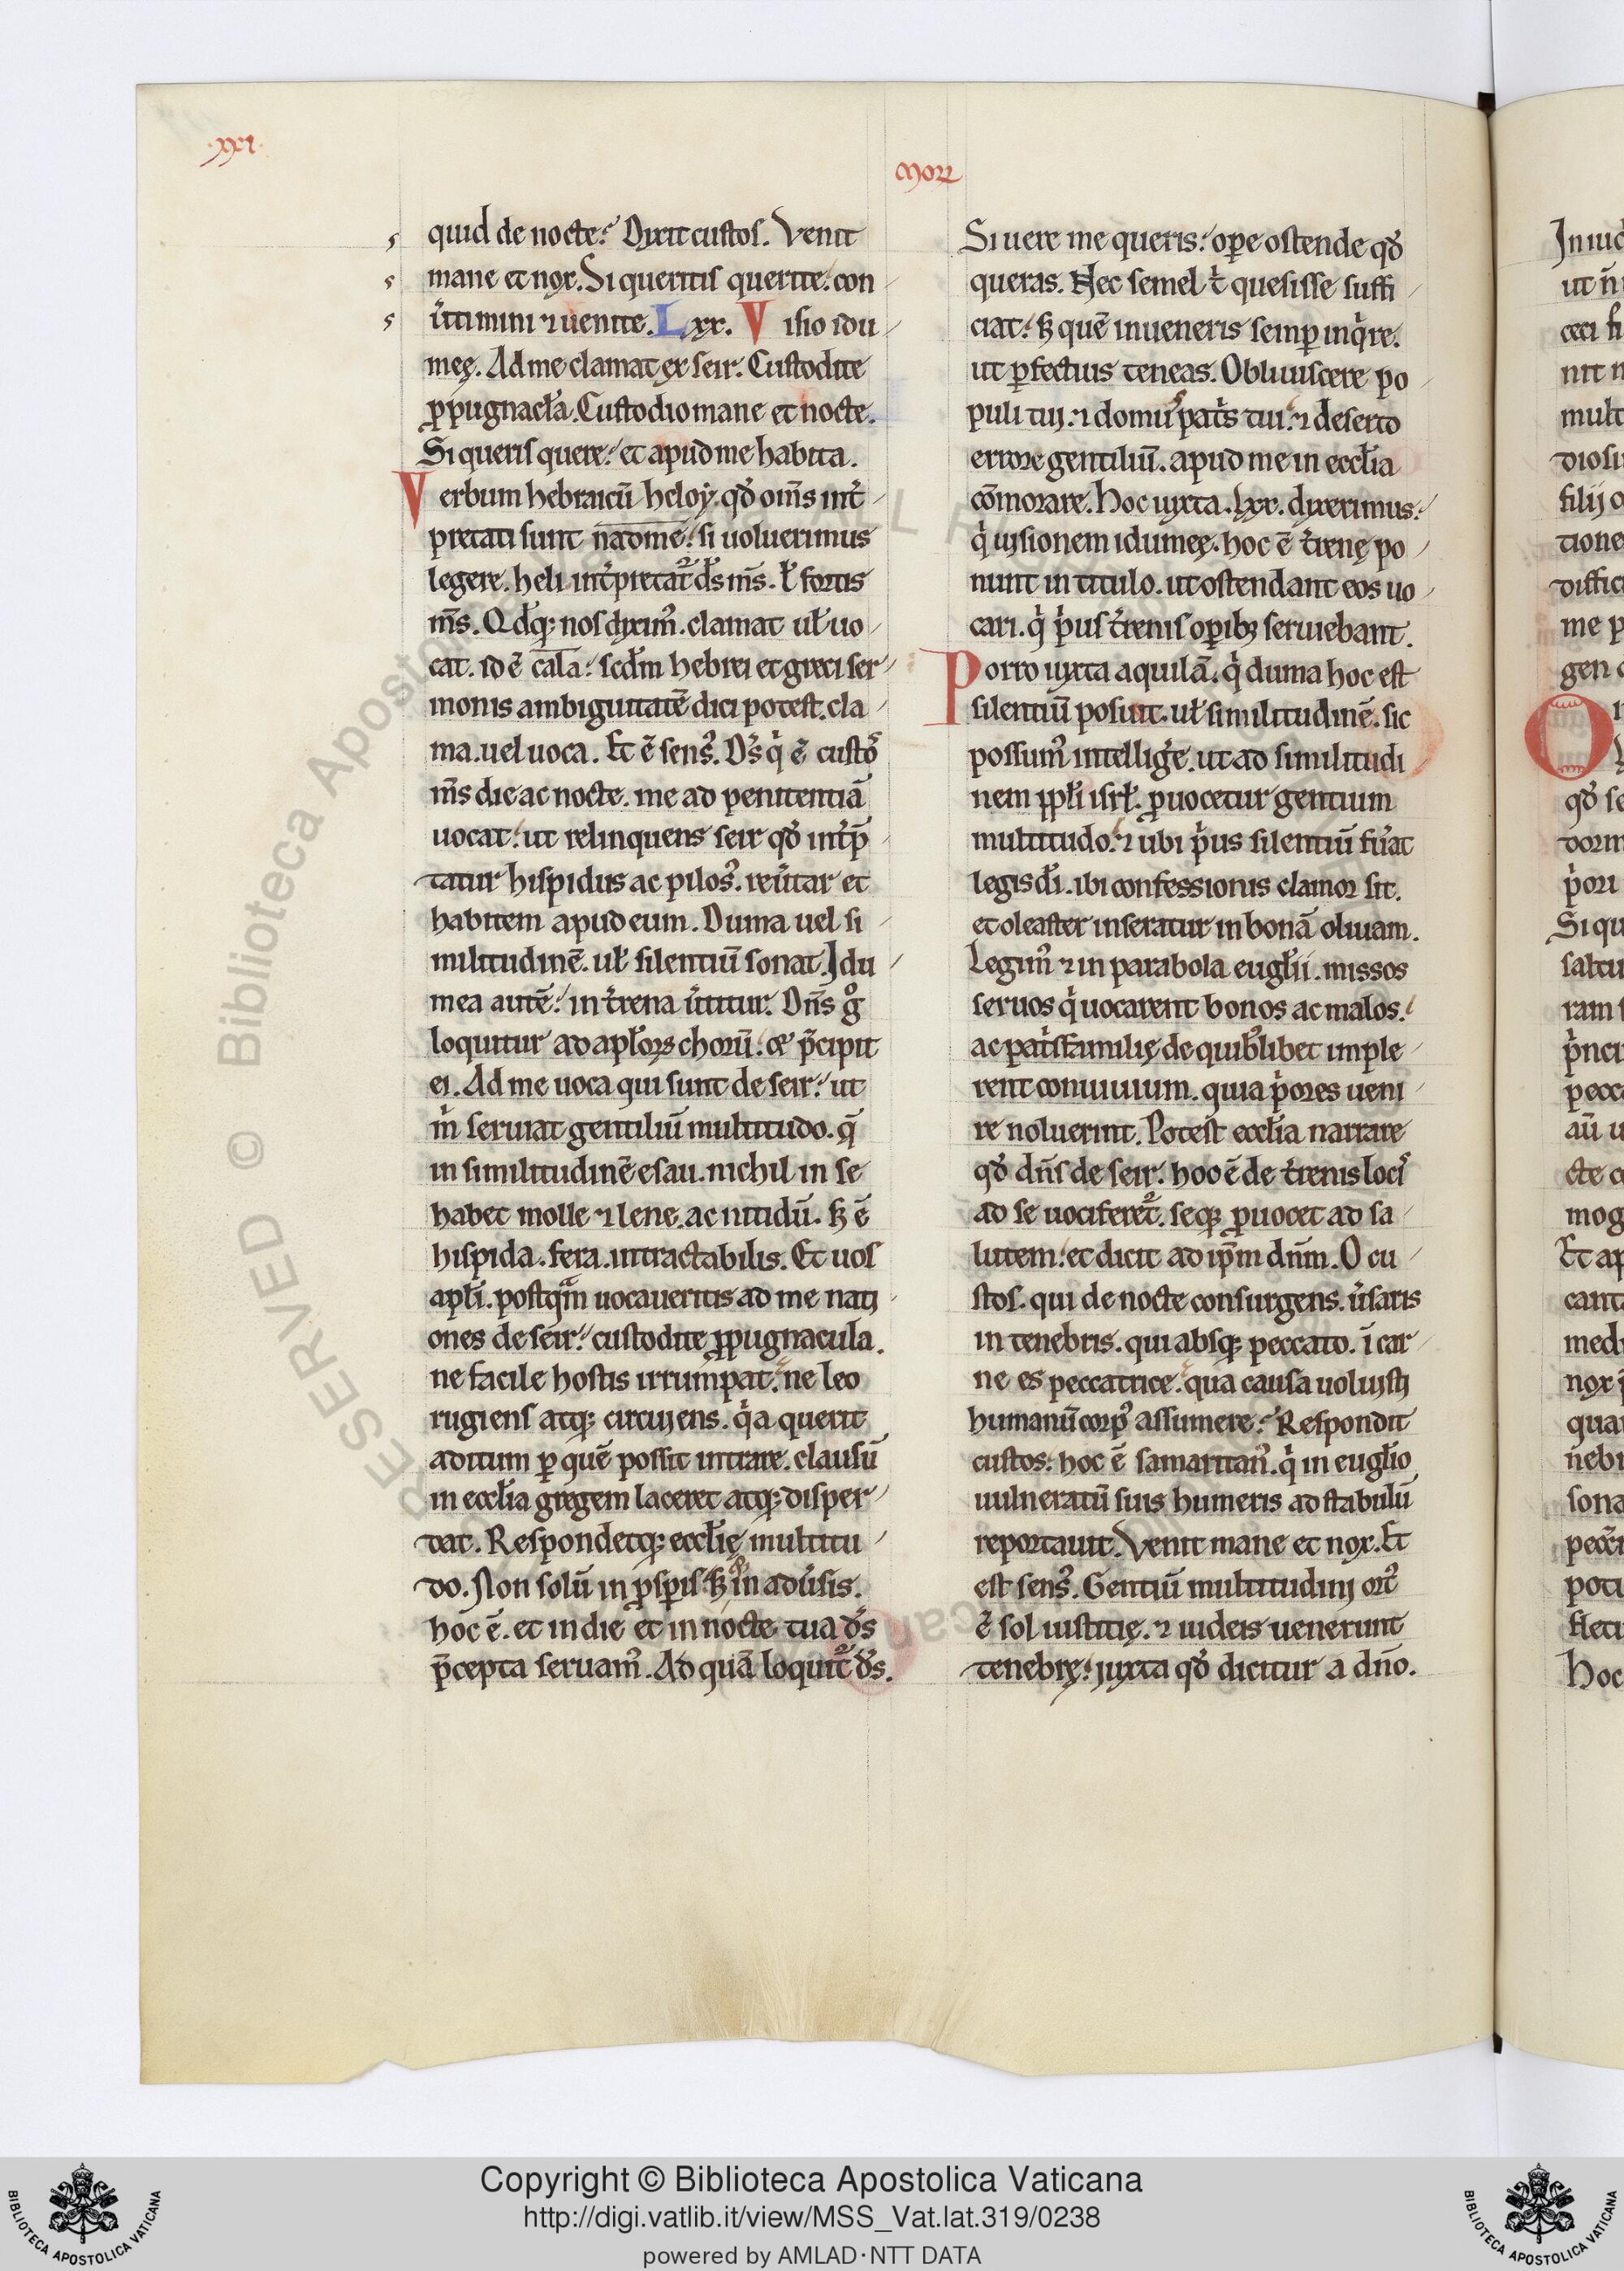 .xxi.
Morl
quid de nocte? Dyxit custos. Venit
mane et nox. Si queritis querite: con
ũtimini ⁊ uenite. Lxx. Visio idu
meę. Ad me clamat ex seir. Custodite
ꝓpugnacła. Custodio mane et nocte.
Si queris quere: et apud me habita.
Verbum hebraicũ heloy. qđ om̃s int̃
pretati sunt n̄ad me: si uoluerimus
legere. heli. int̃pretat᷑ ds̃ ms̃. ł fortis
ms̃. Qdq; nos dyxim᷒. clamat uł uo
cat. id ẽ cala: scđm hebrei et greci ser
monis ambiguitatẽ dici potest. cla
ma. uel uoca. Et ẽ sens᷒. Ds̃ q̇ ẽ custo᷒
ms̃ die ac nocte. me ad penitentiã
uocat: ut relinquens seir qđ int̃p̃
tatur hispidus ac pilos᷒. reũtar et
habitem apud eum. Duma uel si
militudinẽ. uł silentiũ sonat. Idu
mea autẽ: in t̃rena ũtitur. Dñs g̊
loquitur ad apłoꝝ chorũ: & p̃cipit
ei. Ad me uoca qui sunt de seir: ut
m̊ seruiat gentiliũ multitudo. q̃
in similitudinẽ esau. nichil in se
habet molle ⁊ lene. ac nitidũ. ꞩ ẽ
hispida. fera. intractabilis. Et uos
apłi. postq̃m uocaueritis ad me nati
ones de seir: custodite ꝓpugnacula.
ne facile hostis irrumpat: ne leo
rugiens atq; circuiens. q̇a querit
aditum ꝑ quẽ possit intrare. clausũ
in eccłia gregem laceret atq; disper
dat. Respondetq; eccłię multitu
do. Non solũ in ꝓspis ꞩ in adũsis.
hoc ẽ. et in die et in nocte tua ds̃
p̃cepta seruam᷒. Ad quã loquit᷑ ds̃.
Si uere me queris: oꝑe ostende qđ
queras. Hec semel t̊ quesisse suffi
ciat: ꞩ quẽ inueneris semꝑ inq̇re.
ut ꝑfectius teneas. Obliuiscere po
puli tui: ⁊ domu᷒ patis̊ tui: ⁊ deserto
errore gentiliũ. apud me in eccłia
cõmorare. Hoc iuxta. lxx. dyxerimus:
q̇ uisionem idumeę. hoc ẽ t̃renę po
nunt in titulo. ut ostendant eos uo
cari. q̇ p̊us t̃renis oꝑibꝫ seruiebant.
Porro iuxta aquilã. q̇ duma hoc est
silentiũ posuit. uł similitudinẽ. sic
possum᷒ intellig̃e. ut ad similitudi
nem ppłi isrł. ꝓuocetur gentium
multitudo: ⁊ ubi p̊us silentiũ fũat
legis dĩ. ibi confessionis clamor sit.
et oleaster inseratur in bonã oliuam.
Legim᷒ ⁊ in parabola eugłii. missos
seruos q̇ uocarent bonos ac malos.
ac patis̊familię de quib᷒libet imple
rent conuiuium. quia p̊ores ueni
re noluerint. Potest eccłia narrare
qđ dñs de seir. hoc ẽ de t̃renis loci᷒
ad se uociferet᷑. seq; ꝓuocet ad sa
lutem: et dicit ad ip̃m dñm. O cu
stos. qui de nocte consurgens. ũsaris
in tenebris. qui absq; peccato. ĩ car
ne es peccatrice: qua causa uoluisti
humanũ corp᷒ assumere? Respondit
custos: hoc ẽ samaritan᷒. q̇ in eugłio
uulneratũ suis humeris ad stabulũ
reportauit. Venit mane et nox. Et
est sens᷒. Gentiũ multitudini ort᷒
ẽ sol iustitię. ⁊ iudeis uenerunt
tenebrę: iuxta qđ dicitur a dño.
Copyright © Biblioteca Apostolica Vaticana
http://digi.vatlib.it/view/MSS_Vat.lat.319/0238
powered by AMLAD·NTT DATA
BIBLIOTECA APOSTOLICA VATICANA
BIBLIOTECA APOSTOLICA VATICANA